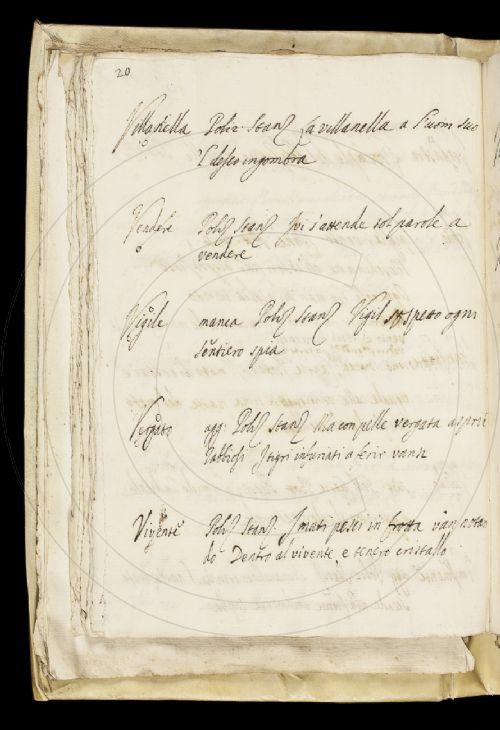 20
Villanella Poliz. Stanz. La villanella a l'uom suo
'l desco ingombra
Vendere Poliz. Stanz. Ivi s'attende sol parole a
vendere
Vigile manca Poliz. Stanz. Vigil sospetto ogni
sentiero spia
Vergato agg. Poliz. Stanz. Ma con pelle vergata aspri e
rabbiosi I tigri infuriati a ferir vanno
Vivente Poliz. Stanz. I muti pesci in frotta van notan
do Dentro al vivente e tenero cristallo